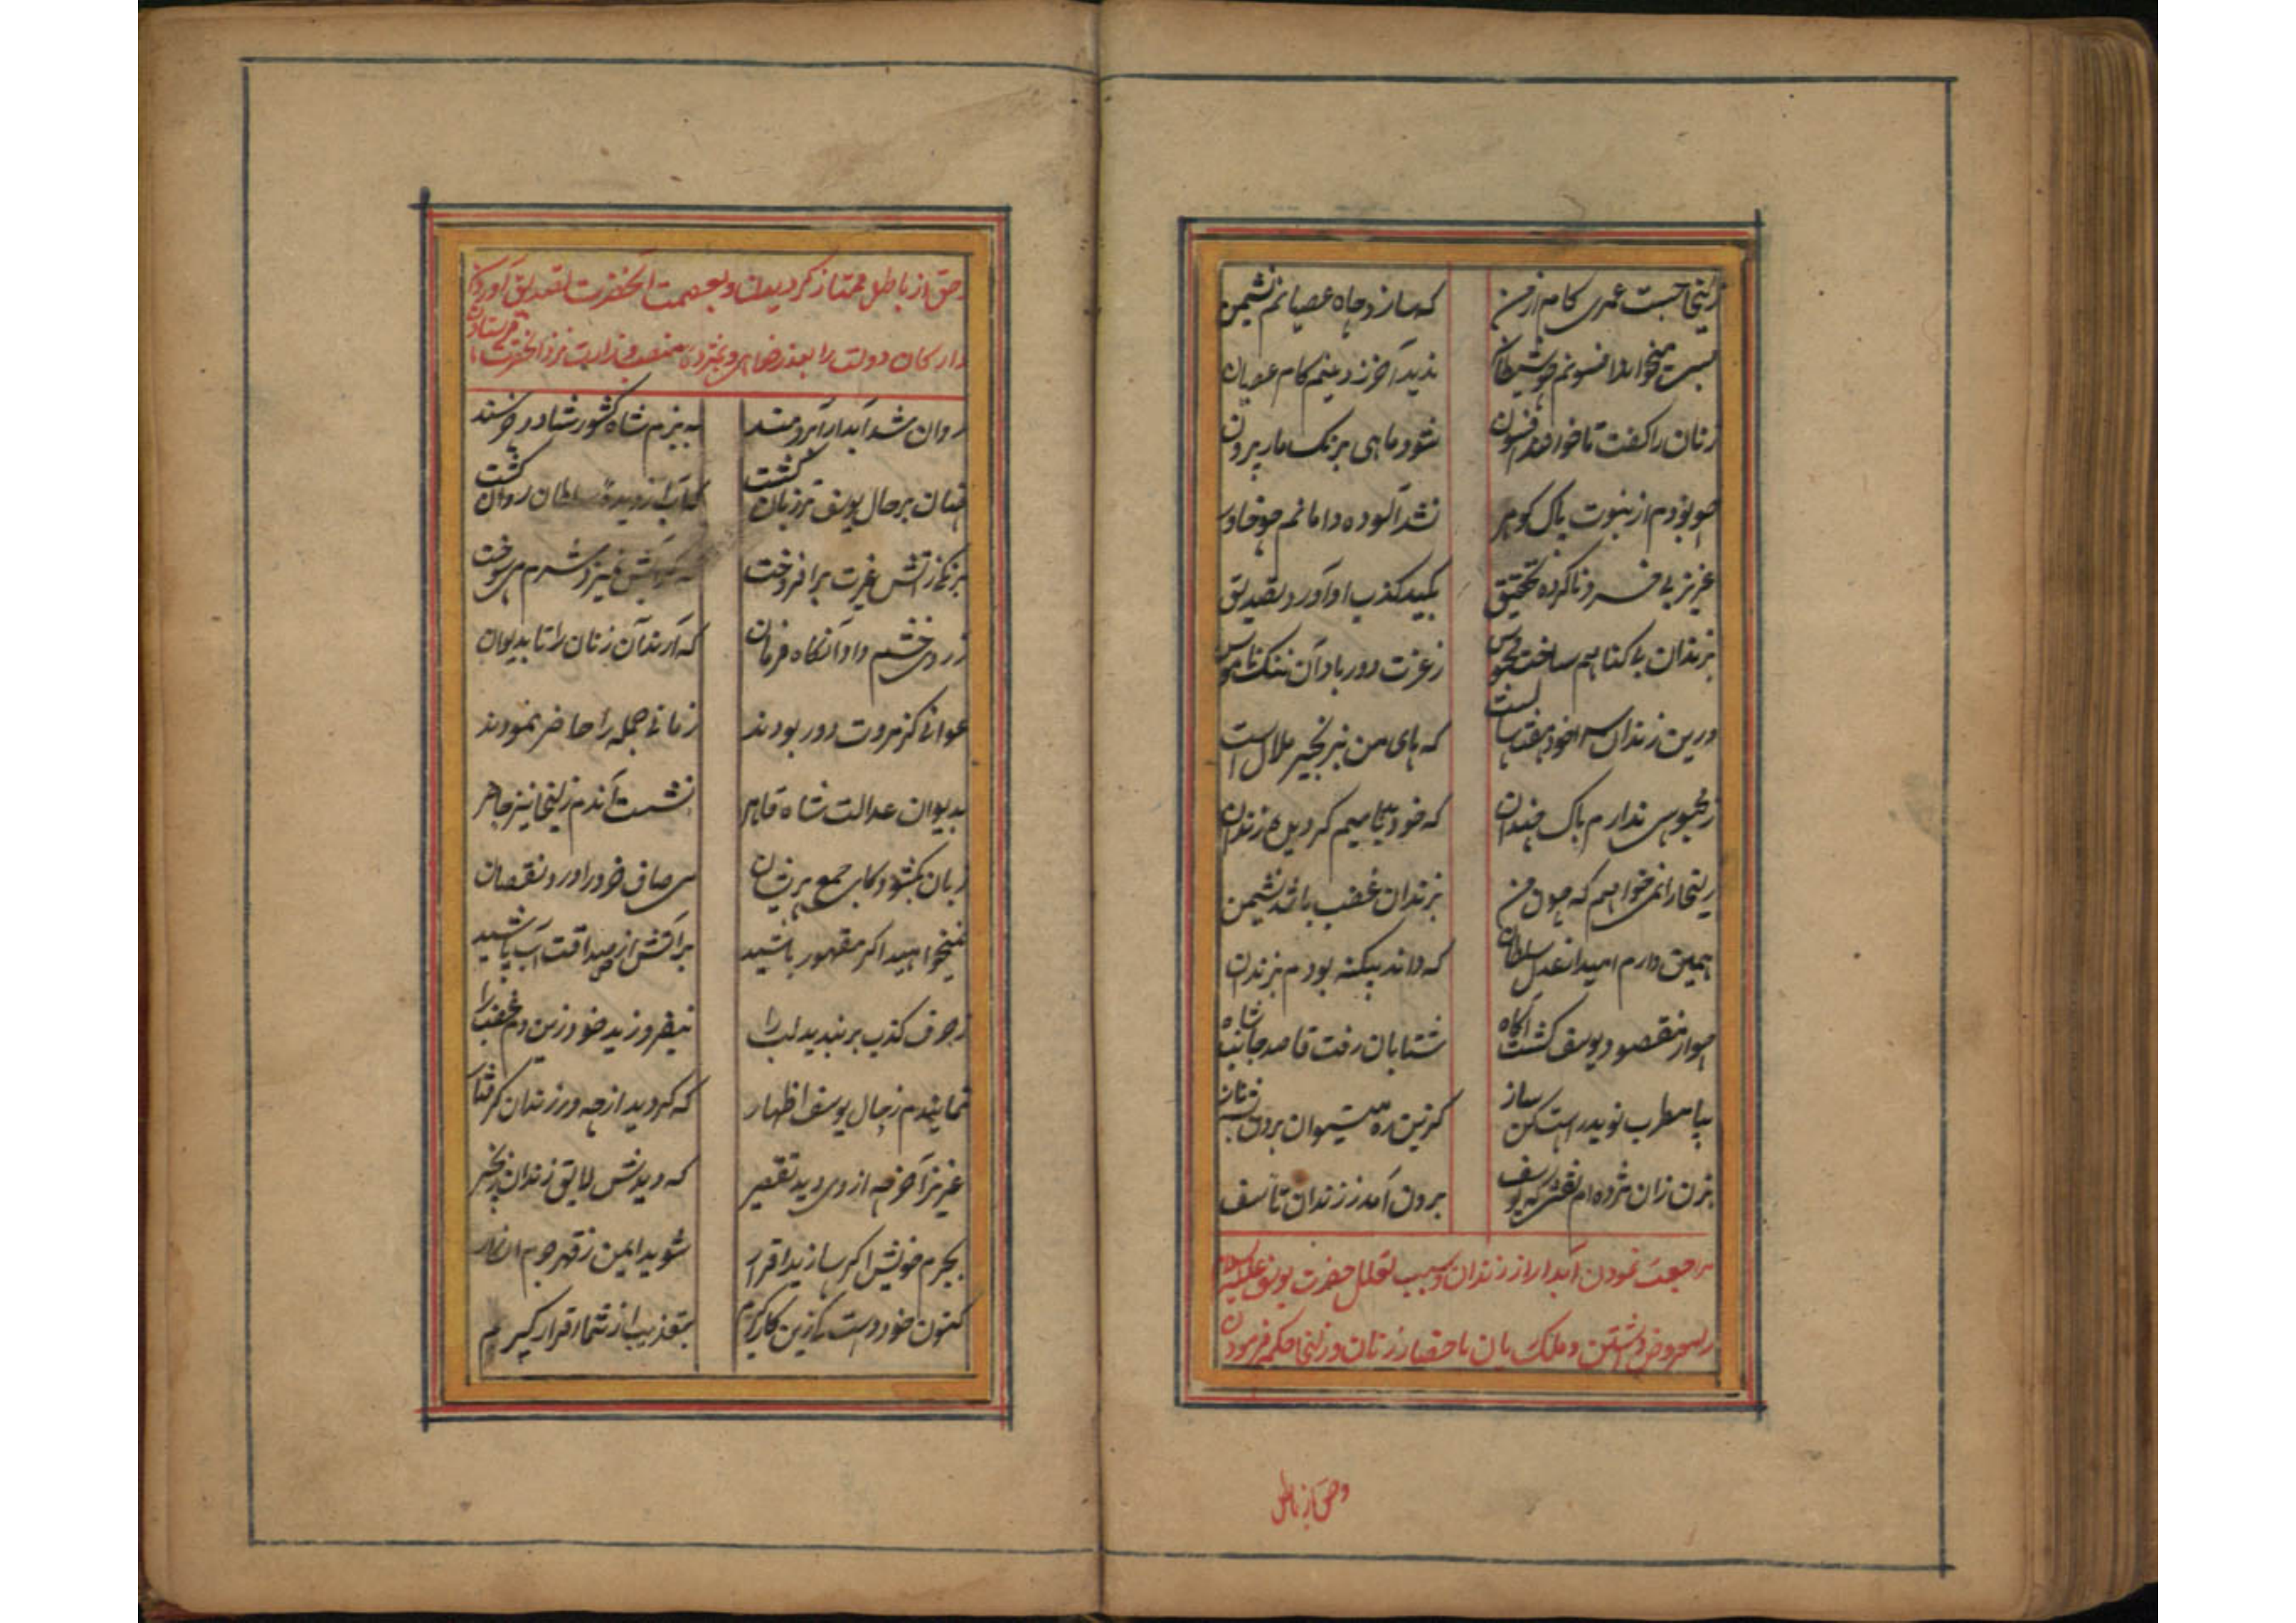 زلیخا جست عمری کام از من که سازد چاه عصیانم نشیمن
بسی میخواند افسونم چو شیطان ندید آخر ز دینم کام عصیان
زنان را گفت تا خواندم افسون شود ماهی برنک مار بیرون
چو بودم از نبوت پاک گوهر نشد آلوده دامانم چو خاور
عزیز بی خرد ناکرده تحقیق بکید کذب او آورد تصدیق
بزندان بی گناهم ساخت محبوس ز عزت دور باد آن ننک ناموس
درین زندان مرا خود هفت سالست که پای من بزنجیر ملال است
ز محبوسی ندارم باک چندان که خود میخواستم گردید زندان
زلیخا را نمیخواهم که چون من بزندان غضب باشد نشیمن
همین دارم امید از عدل سلطان که داند بیکنه بودم بزندان
چو از مقصود یوسف کشت آکاه شتابان رفت قاصد جانب شاه
بیا مطرب نوید راست کن ساز
بزن زان مژده ام نقشی که یوسف برون آمد ز زندان تأسف
مراجعت نمودن آبدار از زندان و سبب تعلل حضرت یوسف علیه السلام
را معروض داشتن و ملک ریان باحضار زنان و زلیخا حکم فرمودن
و حق از باطل
و حق از باطل ممتاز کردیدن و بعصمت آنحضرت تصدیق آوردن
و ارکان دولت را بعذرخواهی و مژده منصب وزارت نزد آنحضرت فرستادن
روان شد آبدار آبرومند به بزم شاه کشور شاد و خرسند
چنان بر حال یوسف تر زبان کشت که آب از دیده سلطان روان کشت
برنکی زآتش غیرت برافروخت
ز روی خشم داد آنکاه فرمان که آرند آن زنان را تا بدیوان
عوانانی کز مروت دور بودند زمانی جمله را حاضر نمودند
بدیوان عدالت شاه قاهر نشست آندم زلیخا نیز حاضر
زبان بکشود کای جمع پریشان
نمیخواهید اکر مقهور باشید بر آتش از صداقت آب پاشید
ز حرف کذب بربندید لب را نیفروزید خود زین دم غضب را
نمایندم ز حال یوسف اظهار که کردید از چه در زندان گرفتار
عزیز آخر چه از وی دید تقصیر که دیدش لایق زندان و زنجیر
بجرم خویش اکر سازید اقرار شوید ایمن ز قهرم
کنون خود راست بتعذیب از شما اقرار کیرم